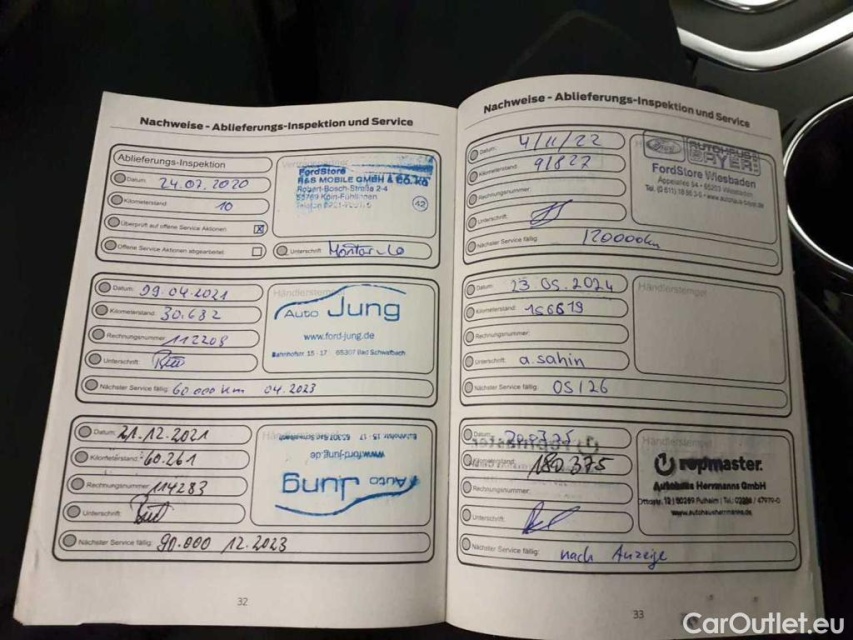 Nachweise - Ablieferungs-Inspektion und Service
Ablieferungs-Inspektion
Datum: 24.07.2020
Kilometerstand: 10
Überprüft auf offene Service Aktionen X
Offene Service Aktionen abgearbeitet
Unterschrift
FordStore
R&S MOBILE GMBH & CO.KG
Robert-Bosch-Straße 2-4
42
Datum: 09.04.2021
Kilometerstand: 30.682
Rechnungsnummer: 112208
Unterschrift:
Nächster Service fällig: 60.000 km 04.2023
Händlerstempel
Auto Jung
www.ford-jung.de
Bahnhofstr. 15 - 17 65307 Bad Schwalbach
Datum: 21.12.2021
Kilometerstand: 60.261
Rechnungsnummer: 114283
Unterschrift:
Nächster Service fällig: 90.000 12.2023
Auto Jung
www.ford-jung.de
Bahnhofstr. 15 - 17 65307 Bad Schwalbach
32
Nachweise - Ablieferungs-Inspektion und Service
Datum: 4/11/22
Kilometerstand: 91827
Rechnungsnummer:
Unterschrift:
Nächster Service fällig: 120000km
Ford
FordStore Wiesbaden
Datum: 23.05.2024
Kilometerstand: 156619
Rechnungsnummer:
Unterschrift: a.sahin
Nächster Service fällig: 05/26
Händlerstempel
Datum:
Kilometerstand: 180.375
Rechnungsnummer:
Unterschrift:
Nächster Service fällig: nach Anzeige
Händlerstempel
repmaster.
Autohaus Herrmanns GmbH
www.autohausherrmanns.de
33
CarOutlet.eu